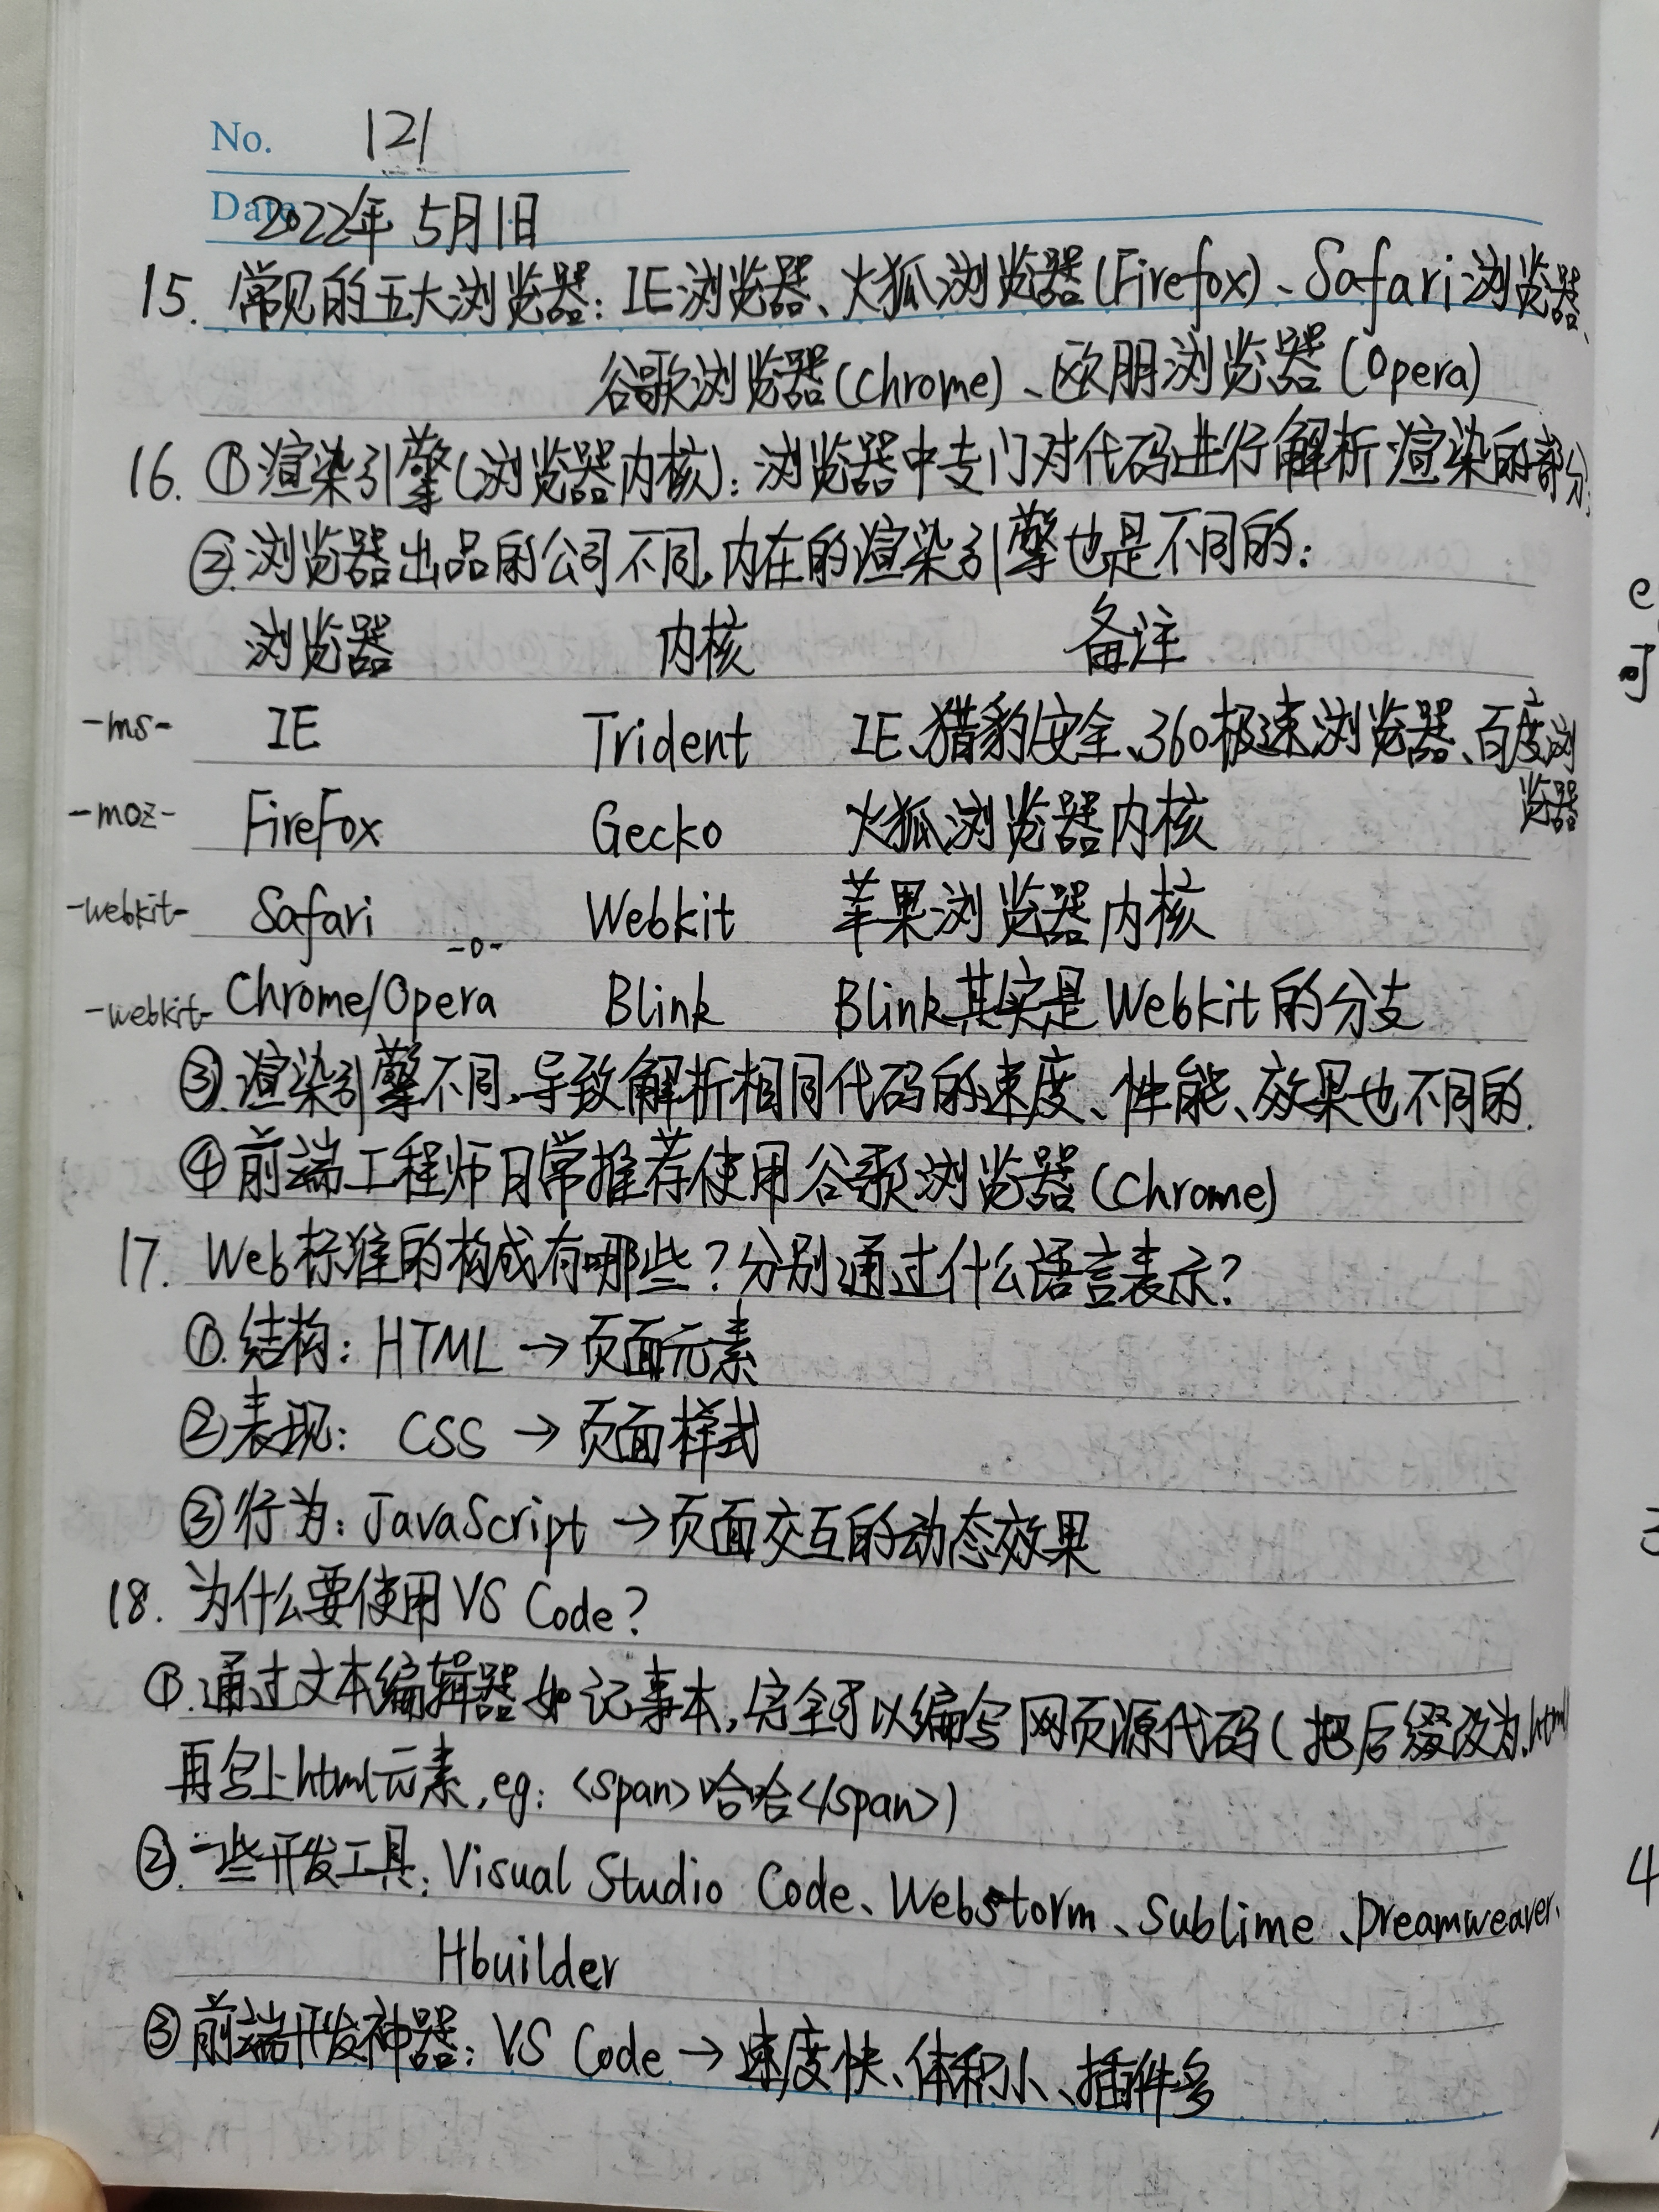 No. 121
Date 2022年5月1日
15. 常见的五大浏览器：IE浏览器、火狐浏览器(Firefox)、Safari浏览器、
谷歌浏览器(Chrome)、欧朋浏览器(Opera)
16. ①渲染引擎(浏览器内核)：浏览器中专门对代码进行解析渲染的部分.
②.浏览器出品的公司不同,内在的渲染引擎也是不同的：
浏览器 内核 备注
-ms- IE Trident IE、猎豹安全、360极速浏览器、百度浏
览器
-moz- FireFox Gecko 火狐浏览器内核
-webkit- Safari Webkit 苹果浏览器内核
-o-
-webkit- Chrome/Opera Blink Blink其实是Webkit的分支
③.渲染引擎不同,导致解析相同代码的速度、性能、效果也不同的.
④前端工程师日常推荐使用谷歌浏览器(Chrome)
17. Web标准的构成有哪些？分别通过什么语言表示？
①.结构：HTML → 页面元素
②表现： CSS → 页面样式
③行为：JavaScript → 页面交互的动态效果
18. 为什么要使用VS Code？
①.通过文本编辑器如记事本,完全可以编写网页源代码(把后缀改为.html
再写上html元素,eg：<span>哈哈</span>)
②.一些开发工具：Visual Studio Code、Webstorm、Sublime、Dreamweaver、
Hbuilder
③前端开发神器：VS Code → 速度快、体积小、插件多
e
可
4